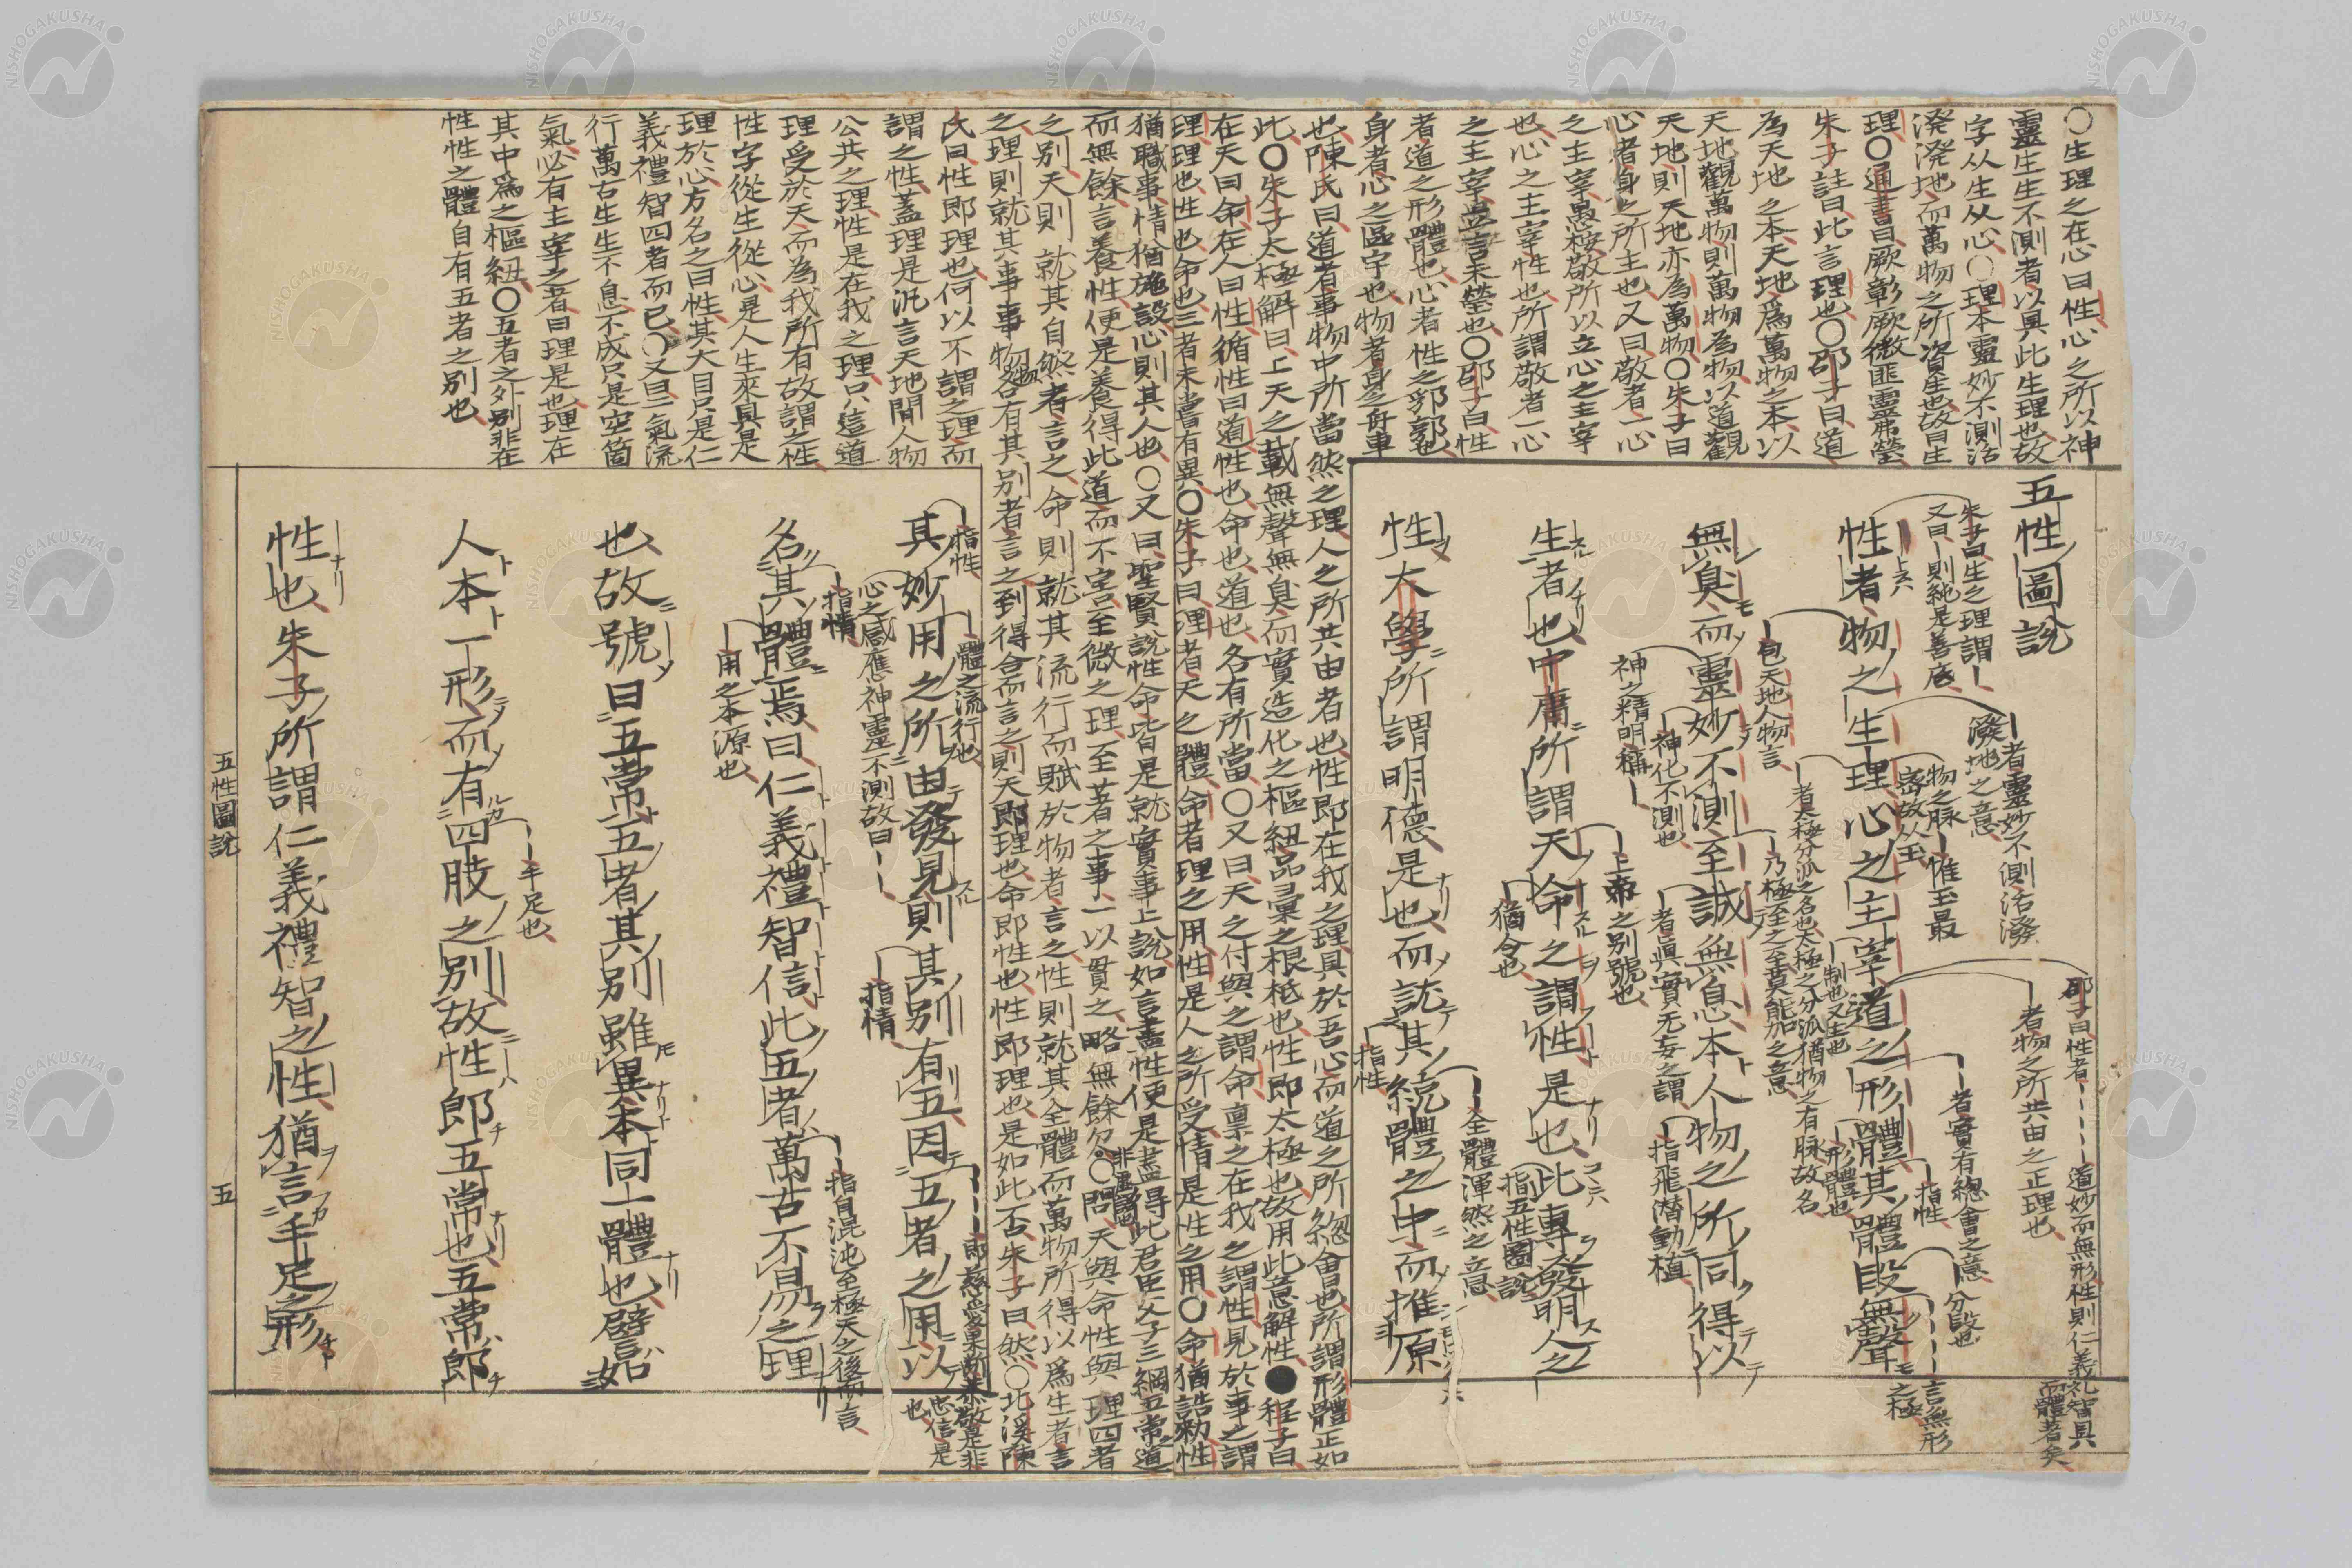 〇生理之在心曰性心之所以神
靈生生不測者以具此生理也故
字从生从心〇理本靈妙不測活
潑潑地而萬物之所資生也故曰生
理〇通書曰厥彰厥微匪靈弗瑩
朱子註曰此言理也〇邵子曰道
為天地之本天地爲萬物之本以
天地觀萬物則萬物為物以道觀
天地則天地亦為萬物〇朱子曰
心者身之所主也又曰敬者一心
之主宰愚按敬所以立心之主宰
也心之主宰性也所謂敬者一心
之主宰此言未瑩也〇邵子曰性
者道之形體也心者性之郛郭也
身者心之區宇也物者身之舟車
也陳氏曰道者事物中所當然之理人之所共由者也性即在我之理具於吾心而道之所總會也所謂形體正如
此〇朱子太極解曰上天之載無聲無臭而實造化之樞紐品彙之根柢也性即太極也故用此意解性●程子曰
在天曰命在人曰性循性曰道性也命也道也各有所當〇又曰天之付與之謂命稟之在我之謂性見於事之謂
理理也性也命也三者未嘗有異〇朱子曰理者天之體命者理之用性是人之所受情是性之用〇命猶誥勅性
猶職事情猶施設心則其人也〇又曰聖賢說性命皆是就實事上說如言盡性便是盡得此君臣父子三綱五常道
而無餘言養性便是養得此道而不害至微之理至著之事一以貫之略無餘欠〇問天與命性與理四者
之別天則就其自然者言之命則就其流行而賦於物者言之性則就其全體而萬物所得以爲生者言
之理則就其事事物物各有其別者言之到得合而言之則天即理也命即性也性即理也是如此否朱子曰然〇北溪陳
氏曰性即理也何以不謂之理而
謂之性蓋理是汎言天地間人物
公共之理性是在我之理只這道
理受於天而為我所有故謂之性
性字從生從心是人生來具是
理於心方名之曰性其大目只是仁
義禮智四者而已〇又曰二氣流
行萬古生生不息不成只是空箇
氣必有主宰之者曰理是也理在
其中爲之樞紐〇五者之外別非在
性性之體自有五者之別也
五性圖說
性者物之生理心之主宰道之形體其體段無聲
無臭而靈妙不測至誠無息本人物之所同得以
生者也中庸所謂天命之謂性是也此專發明人之
性大學所謂明德是也而說其統體之中而推原
其妙用之所由發見則其別有五因五者之用以
名其體焉曰仁義禮智信此五者萬古不易之理
也故號曰五常五者其別雖異本同一體也譬如
人本一形而有四肢之別故性即五常也五常即
性也朱子所謂仁義禮智之性猶言手足之形
朱子曰生之理謂一
又曰一則純是善底
者靈妙不測活潑
潑地之意
物之脉一惟玉最
密故从玉
邵子曰性者一一一一道妙而無形性則仁義礼智具
而體著矣
者物之所共由之正理也
者實有總會之意
制也又主也
形體也
指性
分段也
一言無形
之極
包天地人物言
者太極分派之名也太極之分派猶物之有脉故名
乃極至之至莫能加之意
神之精明稱一
神化不測也
者眞實无妄之謂
指飛潜動植
上帝之別號也
猶令也
指五性圖說
全體渾然之意
指性
指性
體之流行也
心之感應神靈不測故曰一
指情
即慈愛果断恭敬是非
忠信是
也
指情
用之本源也
指自混沌至極天之後而言
手足也
五性圖說
五